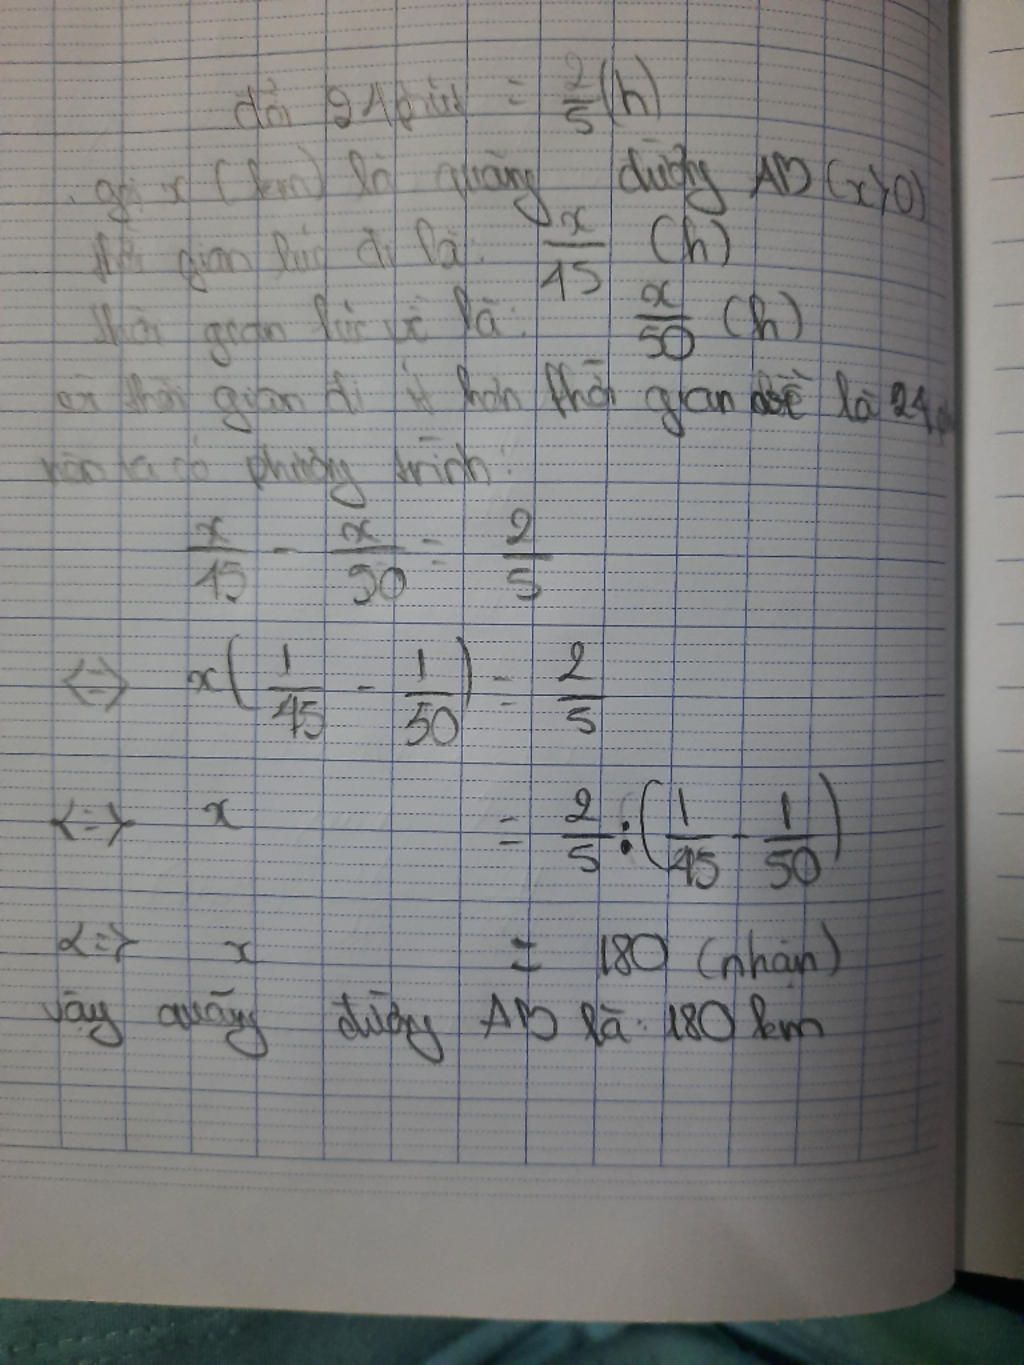 đổi 24 phút = 2/5 (h)
gọi x (km) là quãng đường AB (x>0)
thời gian lúc đi là: x/45 (h)
thời gian lúc về là: x/50 (h)
thời gian đi ít hơn thời gian về là 24
nên ta có phương trình:
x/45 - x/50 = 2/5
<=> x(1/45 - 1/50) = 2/5
<=> x = 2/5 : (1/45 - 1/50)
<=> x = 180 (nhận)
vậy quãng đường AB là: 180 km